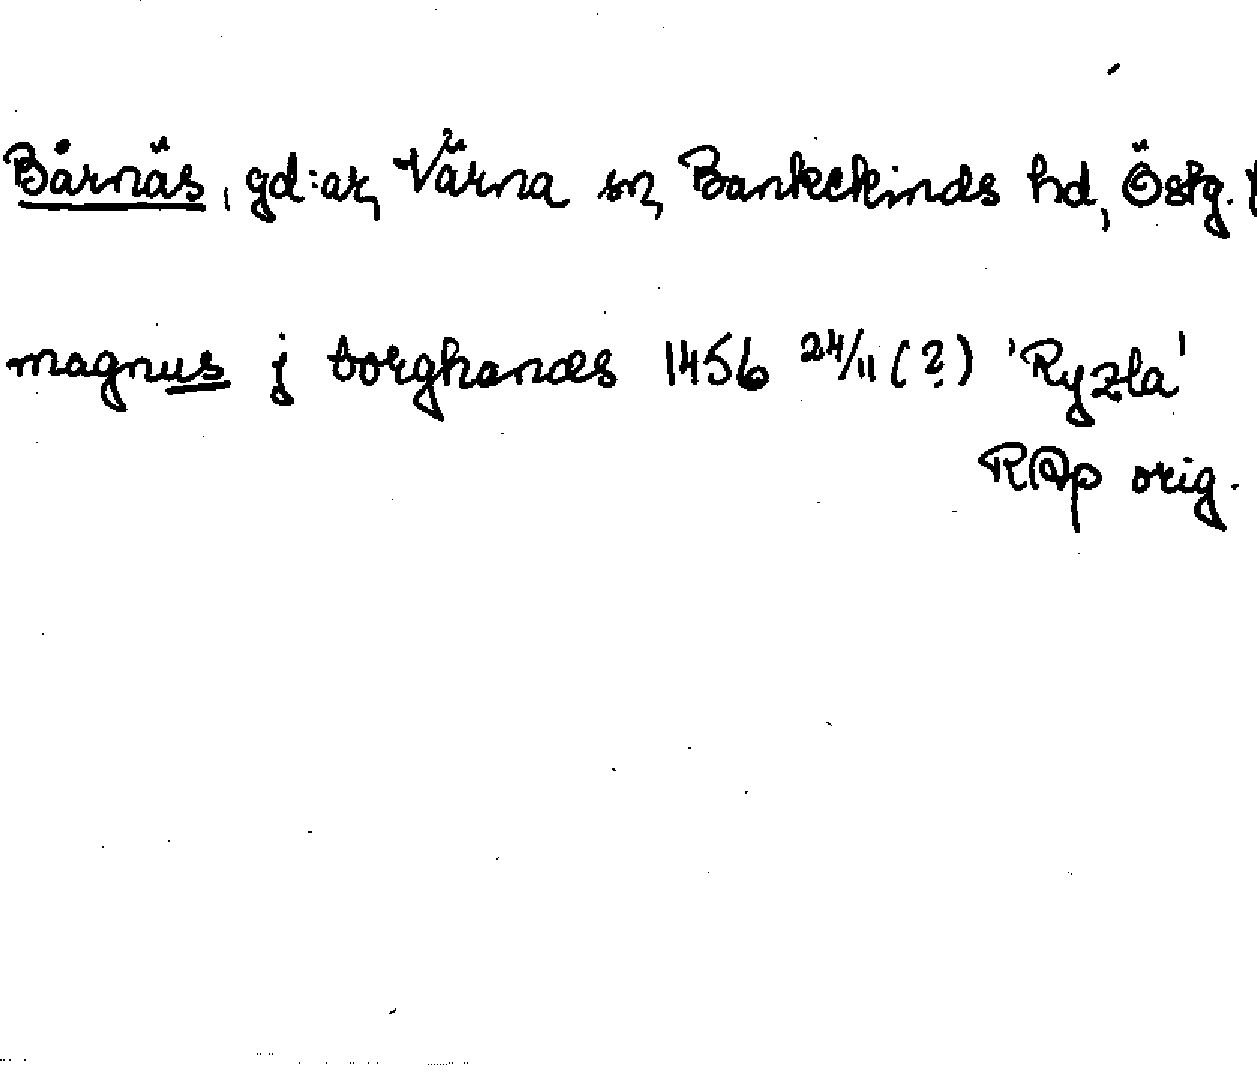 Bårnäs, gd:ar, Värna sn, Bankekinds hd, Östg.
magnus j borghanæs 1456 24/11 (?) 'Ryzla'
RAp orig.